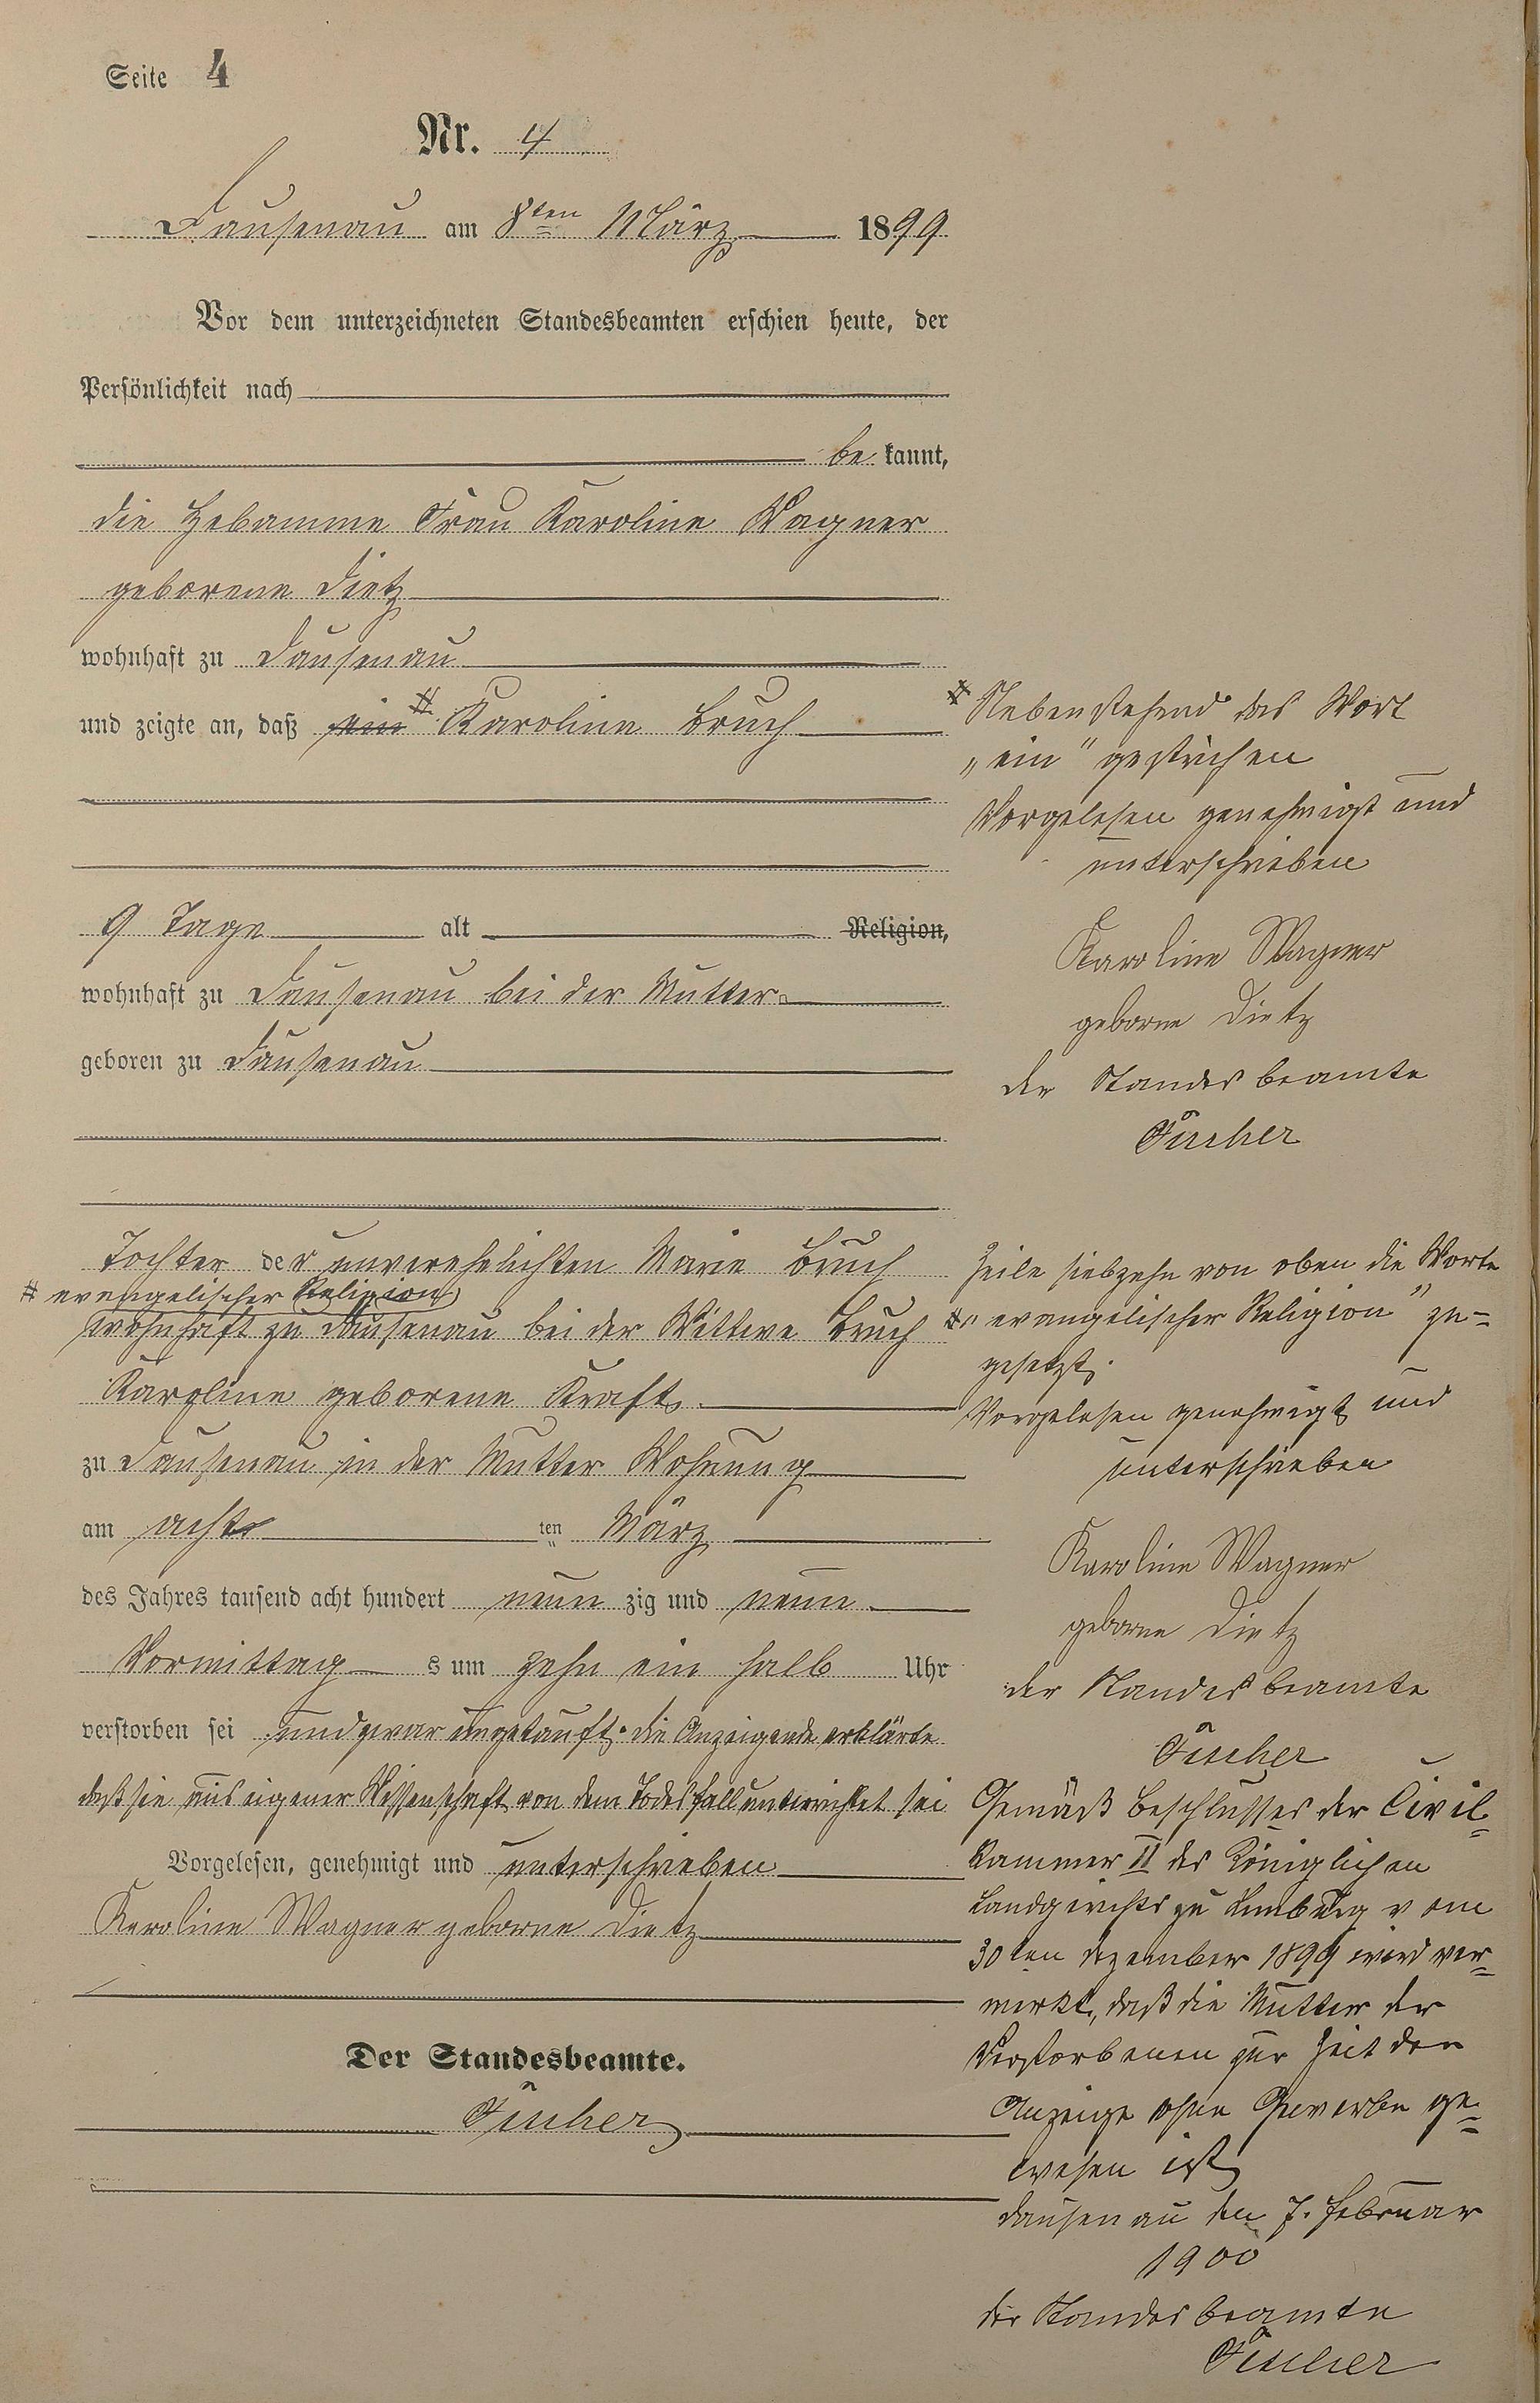 Seite 4
Nr. 4
Dausenau am 8ten März 1899
Vor dem unterzeichneten Standesbeamten erschien heute, der
Persönlichkeit nach
be kannt,
die Hebamme Frau Karoline Wagner
geborene Dietz
wohnhaft zu Dausenau
und zeigte an, daß ein # Karoline Bruch
9 Tage alt Religion,
wohnhaft zu Dausenau bei der Mutter
geboren zu Dausenau
Tochter der unverehelichten Marie Bruch
# evangelischer Religion
wohnhaft zu Dausenau bei der Wittwe Bruch
Karoline geborene Kraft
zu Dausenau in der Mutter Wohnung
am acht ten März
des Jahres tausend acht hundert neun zig und neun
Vormittag s um zehn ein halb Uhr
verstorben sei und zwar ungetauft. die Anzeigende erklärte
daß sie aus eigener Wissenschaft von dem Todesfall unterrichtet sei
Vorgelesen, genehmigt und unterschrieben
Karoline Wagner geborne Dietz
Der Standesbeamte.
Fischer
# Nebenstehend das Wort
„ein" gestrichen
Vorgelesen genehmigt und
unterschrieben
Karoline Wagner
geborne Dietz
der Standesbeamte
Fischer
Zeile siebzehn von oben die Worte
# „evangelischer Religion" zu=
gesetzt.
Vorgelesen genehmigt und
unterschrieben
Karoline Wagner
geborne Dietz
der Standesbeamte
Fischer
Gemäß Beschlusses der Civil=
kammer II des Königlichen
Landgerichts zu Limburg vom
30ten Dezember 1899 wird ver=
merkt, daß die Mutter der
Verstorbenen zur Zeit der
Anzeige ohne Gewerbe ge=
wesen ist
Dausenau den 7. Februar
1900
der Standesbeamte
Fischer